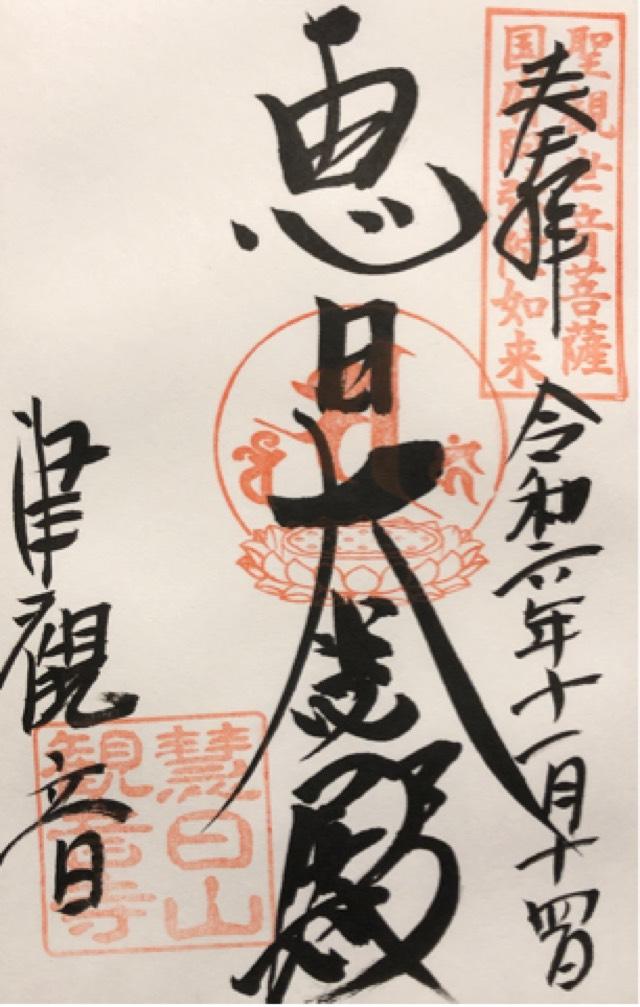 奉拝
令和六年十一月十四日
聖観世音菩薩
国府阿弥陀如来
恵日大悲殿
津觀音
慧日山
観音寺